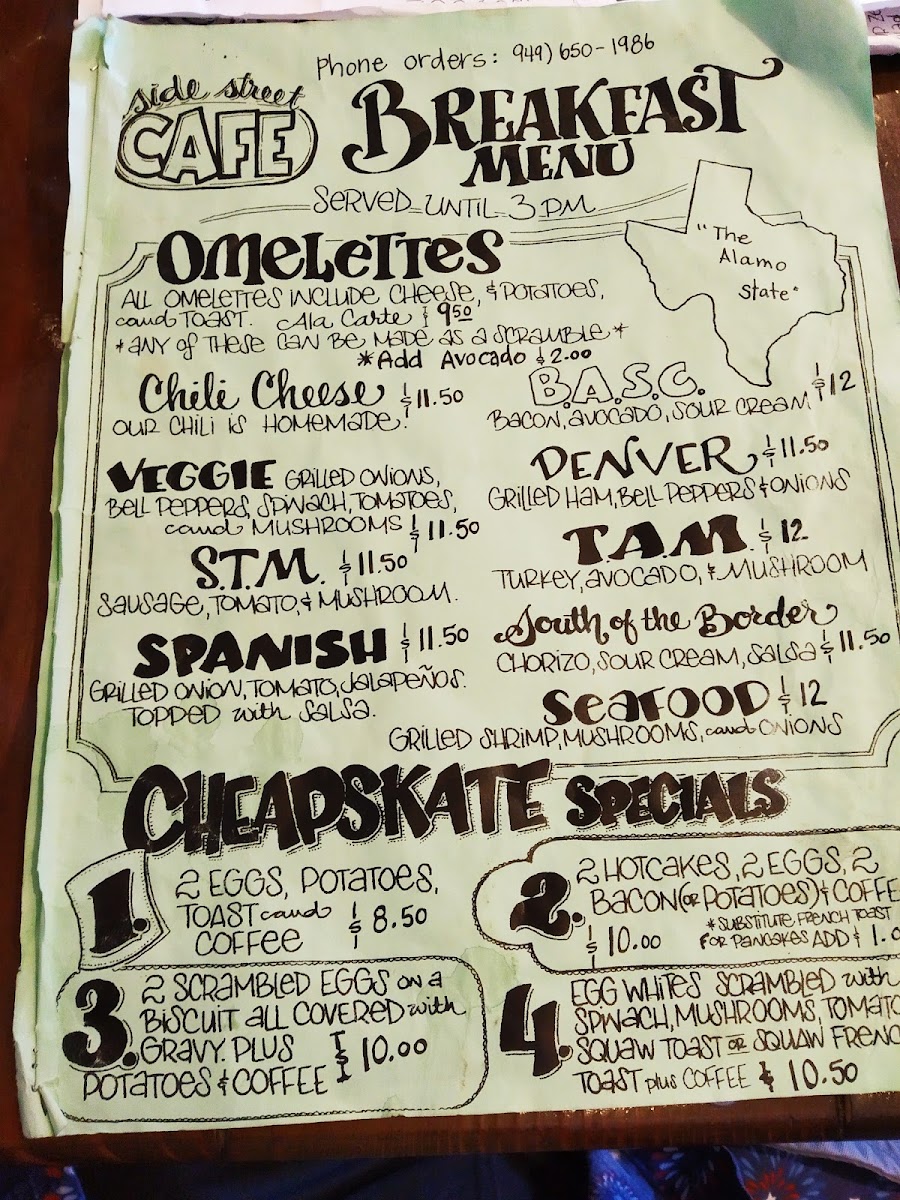 Phone orders: 949) 650-1986
side street
CAFE
BREAKFAST
MENU
SERVED UNTIL 3 PM
"The
Alamo
State"
OMELETTES
ALL OMELETTES INCLUDE CHEESE, & POTATOES,
and TOAST. Ala Carte $ 9.50
*ANY OF THESE CAN BE MADE AS A SCRAMBLE*
*Add Avocado $2.00
Chili Cheese $11.50
OUR CHILI IS HOMEMADE!
VEGGIE GRILLED ONIONS,
BELL PEPPERS, SPINACH, TOMATOES,
and MUSHROOMS $11.50
S.T.M. $11.50
SAUSAGE, TOMATO, & MUSHROOM.
SPANISH $11.50
GRILLED ONION, TOMATO, JALAPEÑOS.
TOPPED with SALSA.
B.A.S.C. $12
BACON, AVOCADO, SOUR CREAM
DENVER $11.50
GRILLED HAM, BELL PEPPERS & ONIONS
T.A.M. $12
TURKEY, AVOCADO, & MUSHROOM
South of the Border
CHORIZO, SOUR CREAM, SALSA $11.50
SEAFOOD $12
GRILLED SHRIMP, MUSHROOMS, and ONIONS
CHEAPSKATE SPECIALS
1. 2 EGGS, POTATOES,
TOAST and
COFFEE $8.50
2. 2 HOTCAKES, 2 EGGS, 2
BACON (OR POTATOES) & COFFE
$10.00
*SUBSTITUTE FRENCH TOAST
FOR PANCAKES ADD $1.0
3. 2 SCRAMBLED EGGS ON A
BISCUIT ALL COVERED with
GRAVY. PLUS
POTATOES & COFFEE $10.00
4. EGG WHITES SCRAMBLED with
SPINACH, MUSHROOMS, TOMATO
SQUAW TOAST OR SQUAW FRENC
TOAST plus COFFEE $10.50